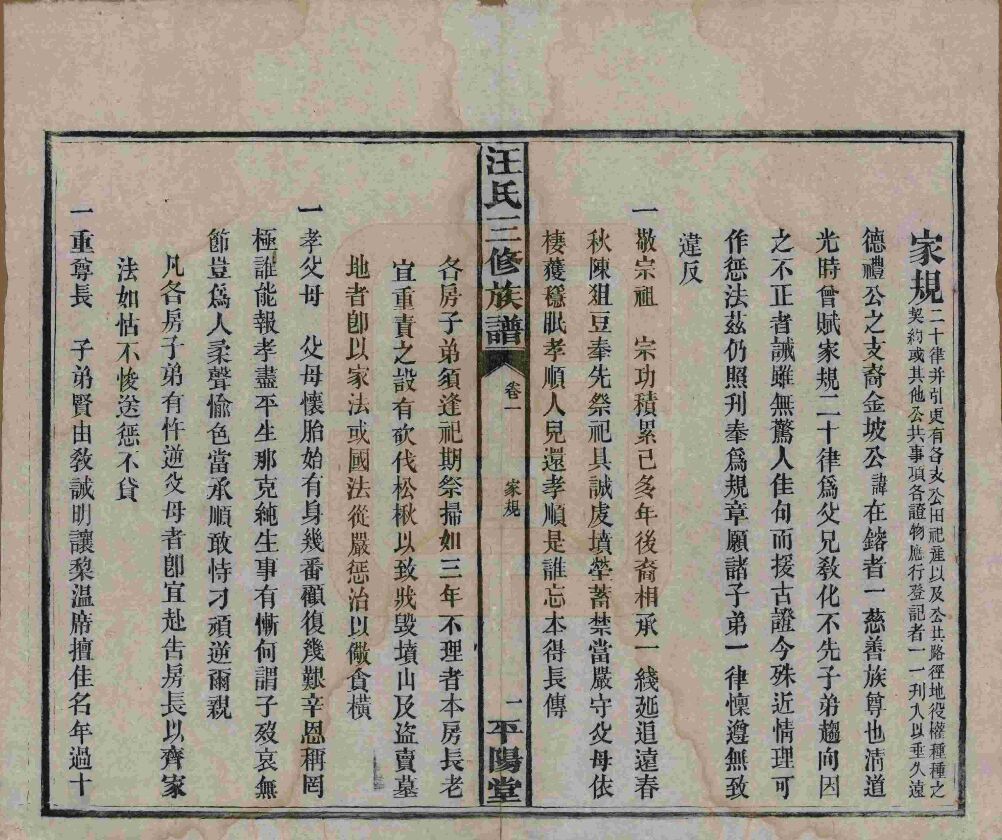 家規二十律并引更有各支公田祀產以及公共路徑地役權種種之
契約或其他公共事項各證物應行登記者一一刊入以垂久遠
德禮公之支裔金坡公諱在鎔者一慈善族尊也清道
光時曾賦家規二十律為父兄教化不先子弟趨向因
之不正者誡雖無驚人佳句而援古證今殊近情理可
作懲法茲仍照刊奉為規章願諸子弟一律懔遵無致
違反
一敬宗祖　宗功積累已多年後裔相承一綫延追遠春
秋陳狙豆奉先祭祀具誠虔墳塋蓄禁當嚴守父母依
棲獲穩眠孝順人兒還孝順是誰忘本得長傳
各房子弟須逢祀期祭掃如三年不理者本房長老
宜重責之設有砍伐松楸以致戕毀墳山及盜賣墓
地者卽以家法或國法從嚴懲治以儆貪橫
一孝父母　父母懷胎始有身幾番顧復幾艱辛恩稱罔
極誰能報孝盡平生那克純生事有慚何謂子歿哀無
節豈爲人柔聲愉色當承順敢恃刁頑逆爾親
凡各房子弟有忤逆父母者卽宜赴告房長以齊家
法如怙不悛送懲不貸
一重尊長　子弟賢由敎誡明讓棃溫席擅佳名年過十
汪氏三修族譜
卷一
家規
一
平陽堂